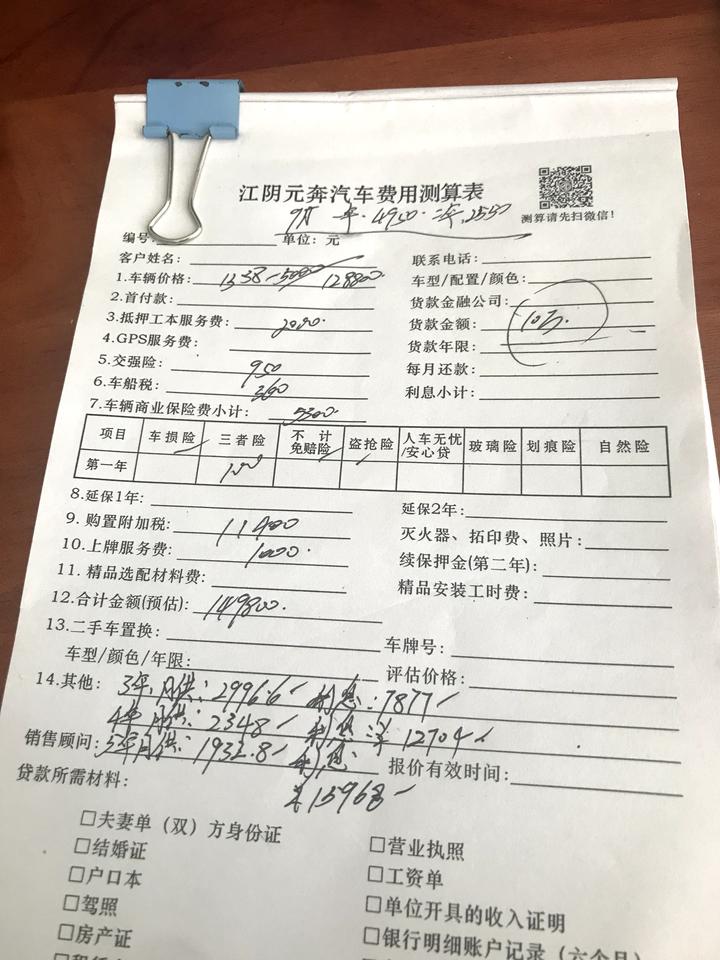 江阴元奔汽车费用测算表
测算请先扫微信!
4950
2550
编号: 单位: 元
客户姓名:
联系电话:
1.车辆价格: 1338-5000 128800
车型/配置/颜色:
2.首付款:
贷款金融公司:
3.抵押工本服务费: 2000.
贷款金额: 10万.
4.GPS服务费:
贷款年限:
5.交强险: 950
每月还款:
6.车船税: 360
利息小计:
7.车辆商业保险费小计: 5300.
项目 车损险 三者险 不计免赔险 盗抢险 人车无忧/安心贷 玻璃险 划痕险 自然险
第一年 100
8.延保1年:
延保2年:
9. 购置附加税: 11400
灭火器、拓印费、照片:
10.上牌服务费: 1000.
续保押金(第二年):
11. 精品选配材料费:
精品安装工时费:
12.合计金额(预估): 149800.
13.二手车置换:
车牌号:
车型/颜色/年限:
评估价格:
14.其他: 3年月供: 2996.6 利息: 7877
4年月供: 2348 利息 12704
销售顾问: 5年月供: 1932.8 利息
报价有效时间:
15968
贷款所需材料:
□夫妻单(双)方身份证
□营业执照
□结婚证
□工资单
□户口本
□单位开具的收入证明
□驾照
□银行明细账户记录(六个月)
□房产证